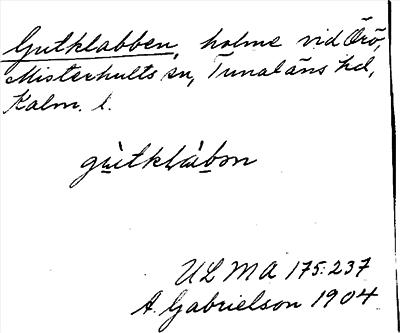 Gutklabben, holme vid Örö,
Misterhults sn, Tunaläns hd,
Kalm. l.
gùtklàbən
ULMA 175:237
A. Gabrielson 1904.